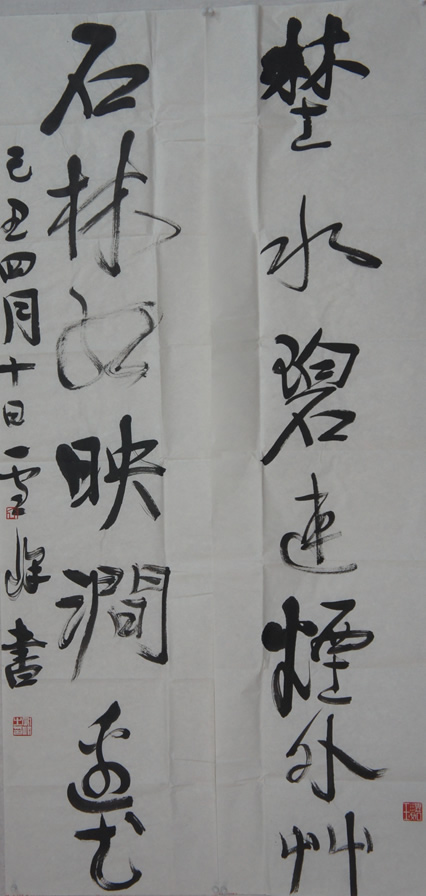 埜水碧連煙外艸
石林紅映澗邊花
己丑四月十日雪峰書